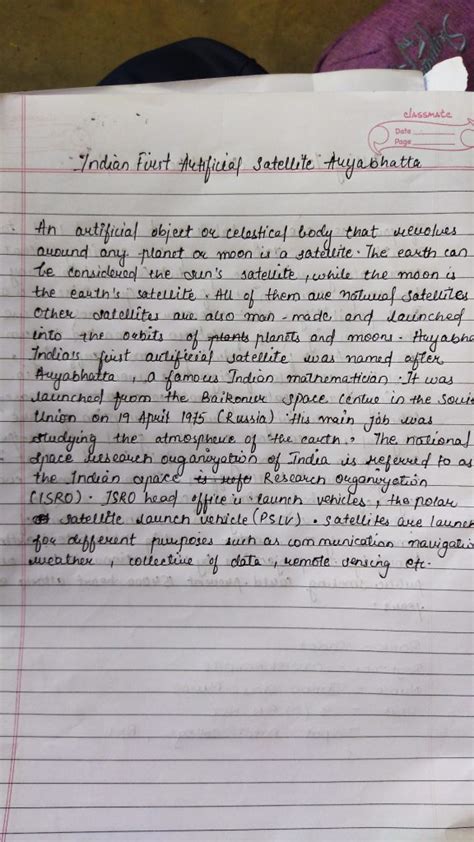 classmate
Date
Page
Indian First Artificial Satellite Aryabhatta
An artificial object or celestical body that revolves
around any planet or moon is a satellite. The earth can
be considered the sun's satellite, while the moon is
the earth's satellite. All of them are natural satellites
Other satellites are also man-made and launched
into the orbits of plants planets and moons. Aryabha
India's first artificial satellite was named after
Aryabhatta, a famous Indian mathematician. It was
launched from the Baikoner space centre in the Sovie
Union on 19 April 1975 (Russia). His main job was
studying the atmosphere of the earth. The national
space research organization of India is referred to as
the Indian space is refe Research organization
(ISRO). ISRO head office is launch vehicles, the polar
satellite launch vehicle (PSLV). satellites are launch
for different purposes such as communication navigatio
weather, collective of data, remote sensing etc.